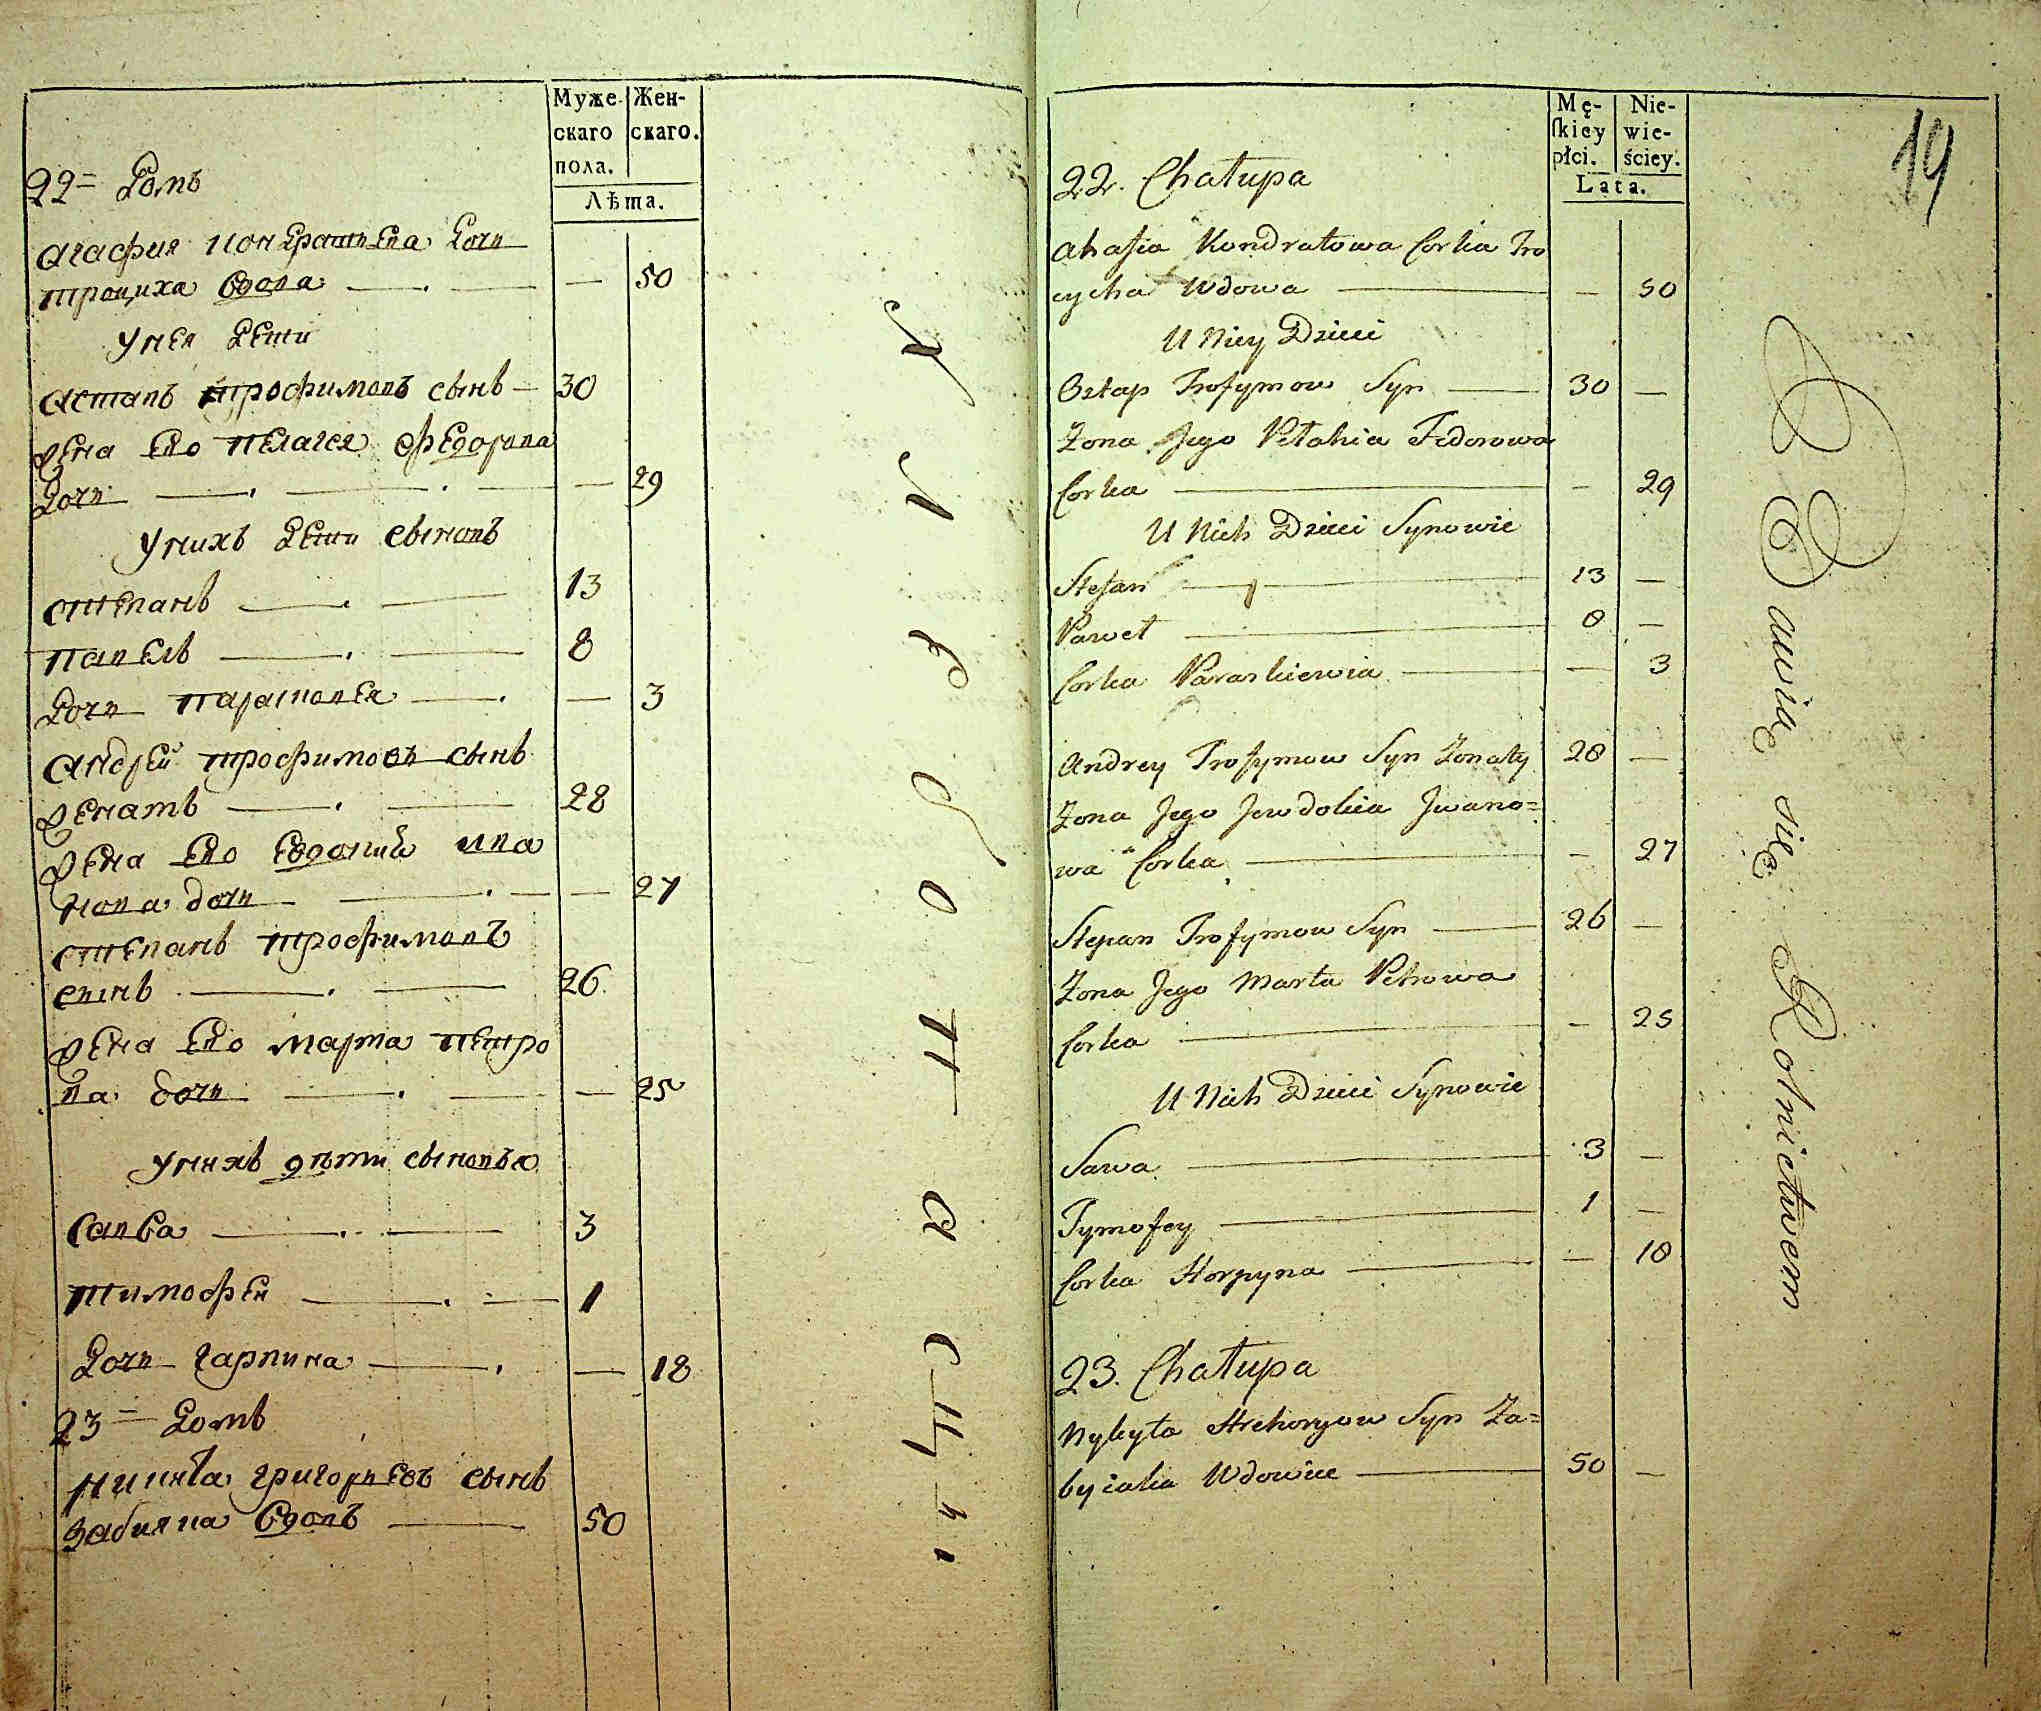 Муже-
скаго
пола.
Жен-
скаго.
Лѣта.
22= Домъ
Агафия Кондратьева Дочь
троциха вдова — — 50
У нея Дети
Астапъ трофимовъ сынъ — 30
жена Его Пелагея федорова
Дочь — — — 29
У нихъ Дети сыновъ
степанъ — — 13
Павелъ — — 8
Дочь Парасковея — — 3
Андрей трофимовъ сынъ
женатъ — — 28
жена Его Евдокия ива
нова дочь — — — 27
степанъ трофимовъ
сынъ — — 26
жена Его марта Петро
ва дочь — — — 25
У нихъ дѣти сыновья
Савва — — 3
Тимофей — — 1
Дочь гарпина — — 18
23= Домъ
Никита григорьевъ сынъ
Забияка вдовъ — 50
Mę-
ſkiey
płci.
Nie-
wie-
ściey.
Lata.
19
22. Chałupa
Ahafia Kondratowa Corka Tro
cycha Wdowa — — 50
U Niey Dzieci
Ostap Trofymow Syn — 30 —
Żona Jego Pełahia Fedorowa
Corka — — 29
U Nich Dzieci Synowie
Stefan — 13 —
Paweł — 8 —
Corka Paraskiewia — — 3
Andrey Trofymow Syn Żonaty 28 —
Żona Jego Jewdokia Jwano=
wa Corka — — 27
Stepan Trofymow Syn — 26 —
Żona Jego Marta Petrowa
Corka — — 25
U Nich Dzieci Synowie
Sawa — 3 —
Tymofey — 1 —
Corka Horpyna — — 18
23. Chałupa
Nykyta Hrehoryow Syn Za=
byiaka Wdowiec — 50 —
Bawią się Rolnictwem